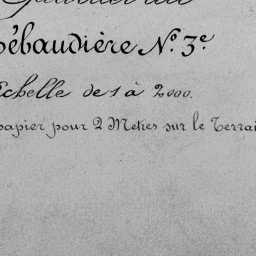 ébaudière N.º 3.e
Echelle de 1 à 2000.
papier pour 2 Metres sur le Terrai